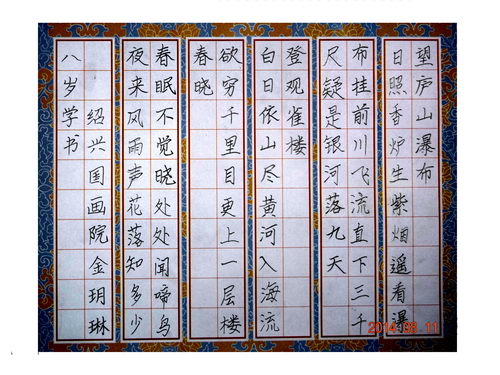 望庐山瀑布
日照香炉生紫烟遥看瀑
布挂前川飞流直下三千
尺疑是银河落九天
登观雀楼
白日依山尽黄河入海流
欲穷千里目更上一层楼
春晓
春眠不觉晓处处闻啼鸟
夜来风雨声花落知多少
绍兴国画院金玥琳
八岁学书